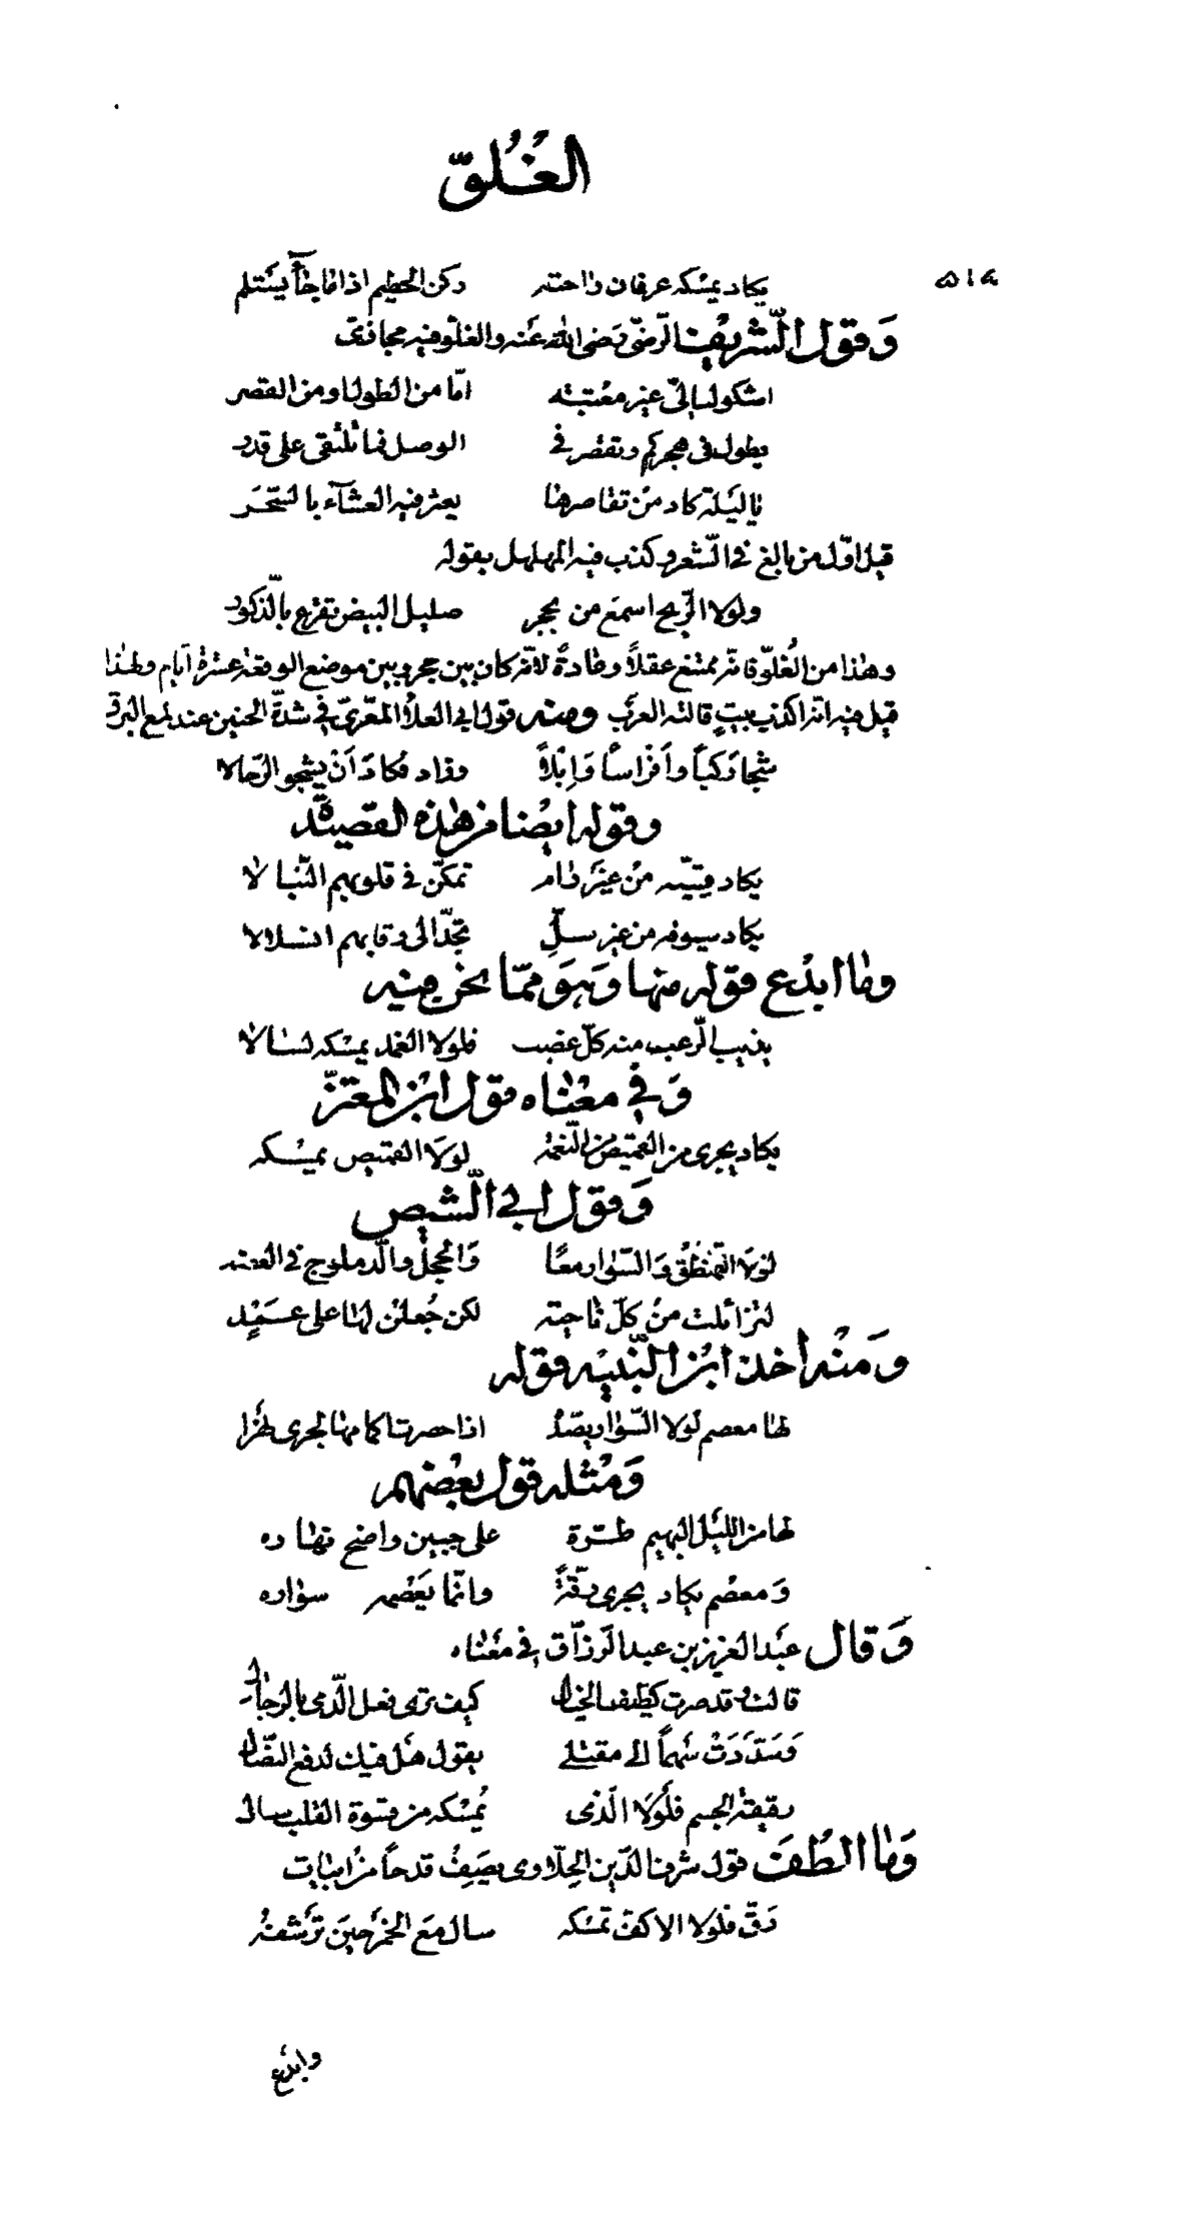 الغُلوّ
٥١٨
يكاد يمسكه عرفان راحته ركن الحطيم اذا ما جآء يستلم
وَقول الشّريف الرّضىّ رَضى الله عَنه والغلوّ فيه مجازىّ
اشكو ليالىّ غير معتبةٍ امّا من الطول او من القصر
يطول فى هجركم وتقصر فى الوصل فما نلتقى على قدر
يا ليَلة كاد من تقاصرها يعثر فيه العشآء بالسّحَر
قيل اوّل من بالغ فى الشّعر وكذب فيه المهلهل بقوله
ولولا الرّيح اسمع من بحجر صليل البيض تقرع بالذّكور
وهذا من الغُلوّ فانّه ممتنع عقلاً وعادةً لانّه كان بين حجر وبين موضع الوقعة عشرة أيّام ولهذا
قيل فيه انّه اكذب بيتٍ قالته العرَب ومنه قول ابى العلاء المعَرّىّ فى شدّة الحنين عند لمع البرق
شجا رَكباً وأفراسًا وَإبْلاً وزاد فكادَ أنْ يشجو الرّحالا
وقوله ايضًا من هذه القصيدة
يكاد قِسيّه منْ غيرَ رام تمكّن فى قلوبهم النّبالا
يكاد سيوفه من غير سلّ تجدّ الى رقابهم انسلالا
وما ابدع قوله منها وَهوَ ممّا نحن فيه
يذيب الرّعب منه كلّ عضب فلولا الغمد يمسكه لسالا
وَفى معْناه قول ابْن المعتزّ
يكاد يجرى من القميص من النّعمة لولَا القميص يمسكه
وَقول ابى الشّيص
لولَا التمنطُق وَالسّوار معًا وَالحجل والدّملوج فى العضد
لتزائلت منْ كلّ ناحية لكن جُعلن لها على عمَدٍ
وَمنْه أخذ ابْن النّبيْه فقوله
لها معصم لولا السّوار يصدّه اذا حسرت اكمامها لجرى نهرًا
وَمثْله قول بعْضهم
لها من اللّيل البهيم طرّة على جبين واضح نهاره
وَمعصم يكاد يجرى رقّةً وانّما يعَصمه سواره
وَقال عبَد العزيز بن عبد الرّزّاق فى معَناه
قالت وقد صرت كطيف الخيال كيف ترى فعل الدّمى بالرّجال
وَسَدّدَتْ سَهماً الى مقتلى يقول هل فيك لدفع النّضال
رقيقة الجسم فلَولَا الّذى يُمسْكه من قسَوة القلب سال
وَما الطفَ قول شرف الدّين الحِلّاوى يصَفُ قدحاً منْ ابيات
رَقّ فلولا الاكفّ تمسكه سال معَ الخمر حينَ ترشفهُ
وابدع